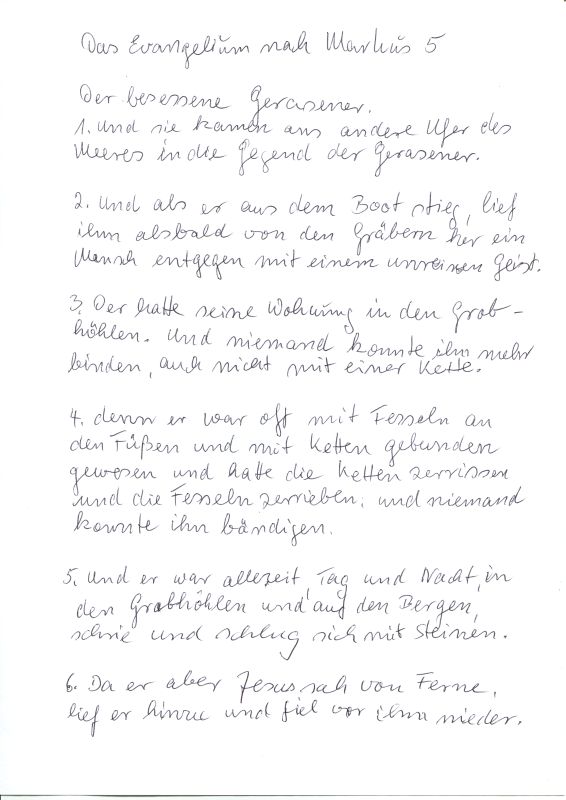 Das Evangelium nach Markus 5
Der besessene Gerasener.
1. Und sie kamen ans andere Ufer des
Meeres in die Gegend der Gerasener.
2. Und als er aus dem Boot stieg, lief
ihm alsbald von den Gräbern her ein
Mensch entgegen mit einem unreinen Geist.
3. Der hatte seine Wohnung in den Grab-
höhlen. Und niemand konnte ihn mehr
binden, auch nicht mit einer Kette.
4. denn er war oft mit Fesseln an
den Füßen und mit Ketten gebunden
gewesen und hatte die Ketten zerrissen
und die Fesseln zerrieben; und niemand
konnte ihn bändigen.
5. Und er war allezeit, Tag und Nacht, in
den Grabhöhlen und auf den Bergen,
schrie und schlug sich mit Steinen.
6. Da er aber Jesus sah von Ferne,
lief er hinzu und fiel vor ihm nieder.